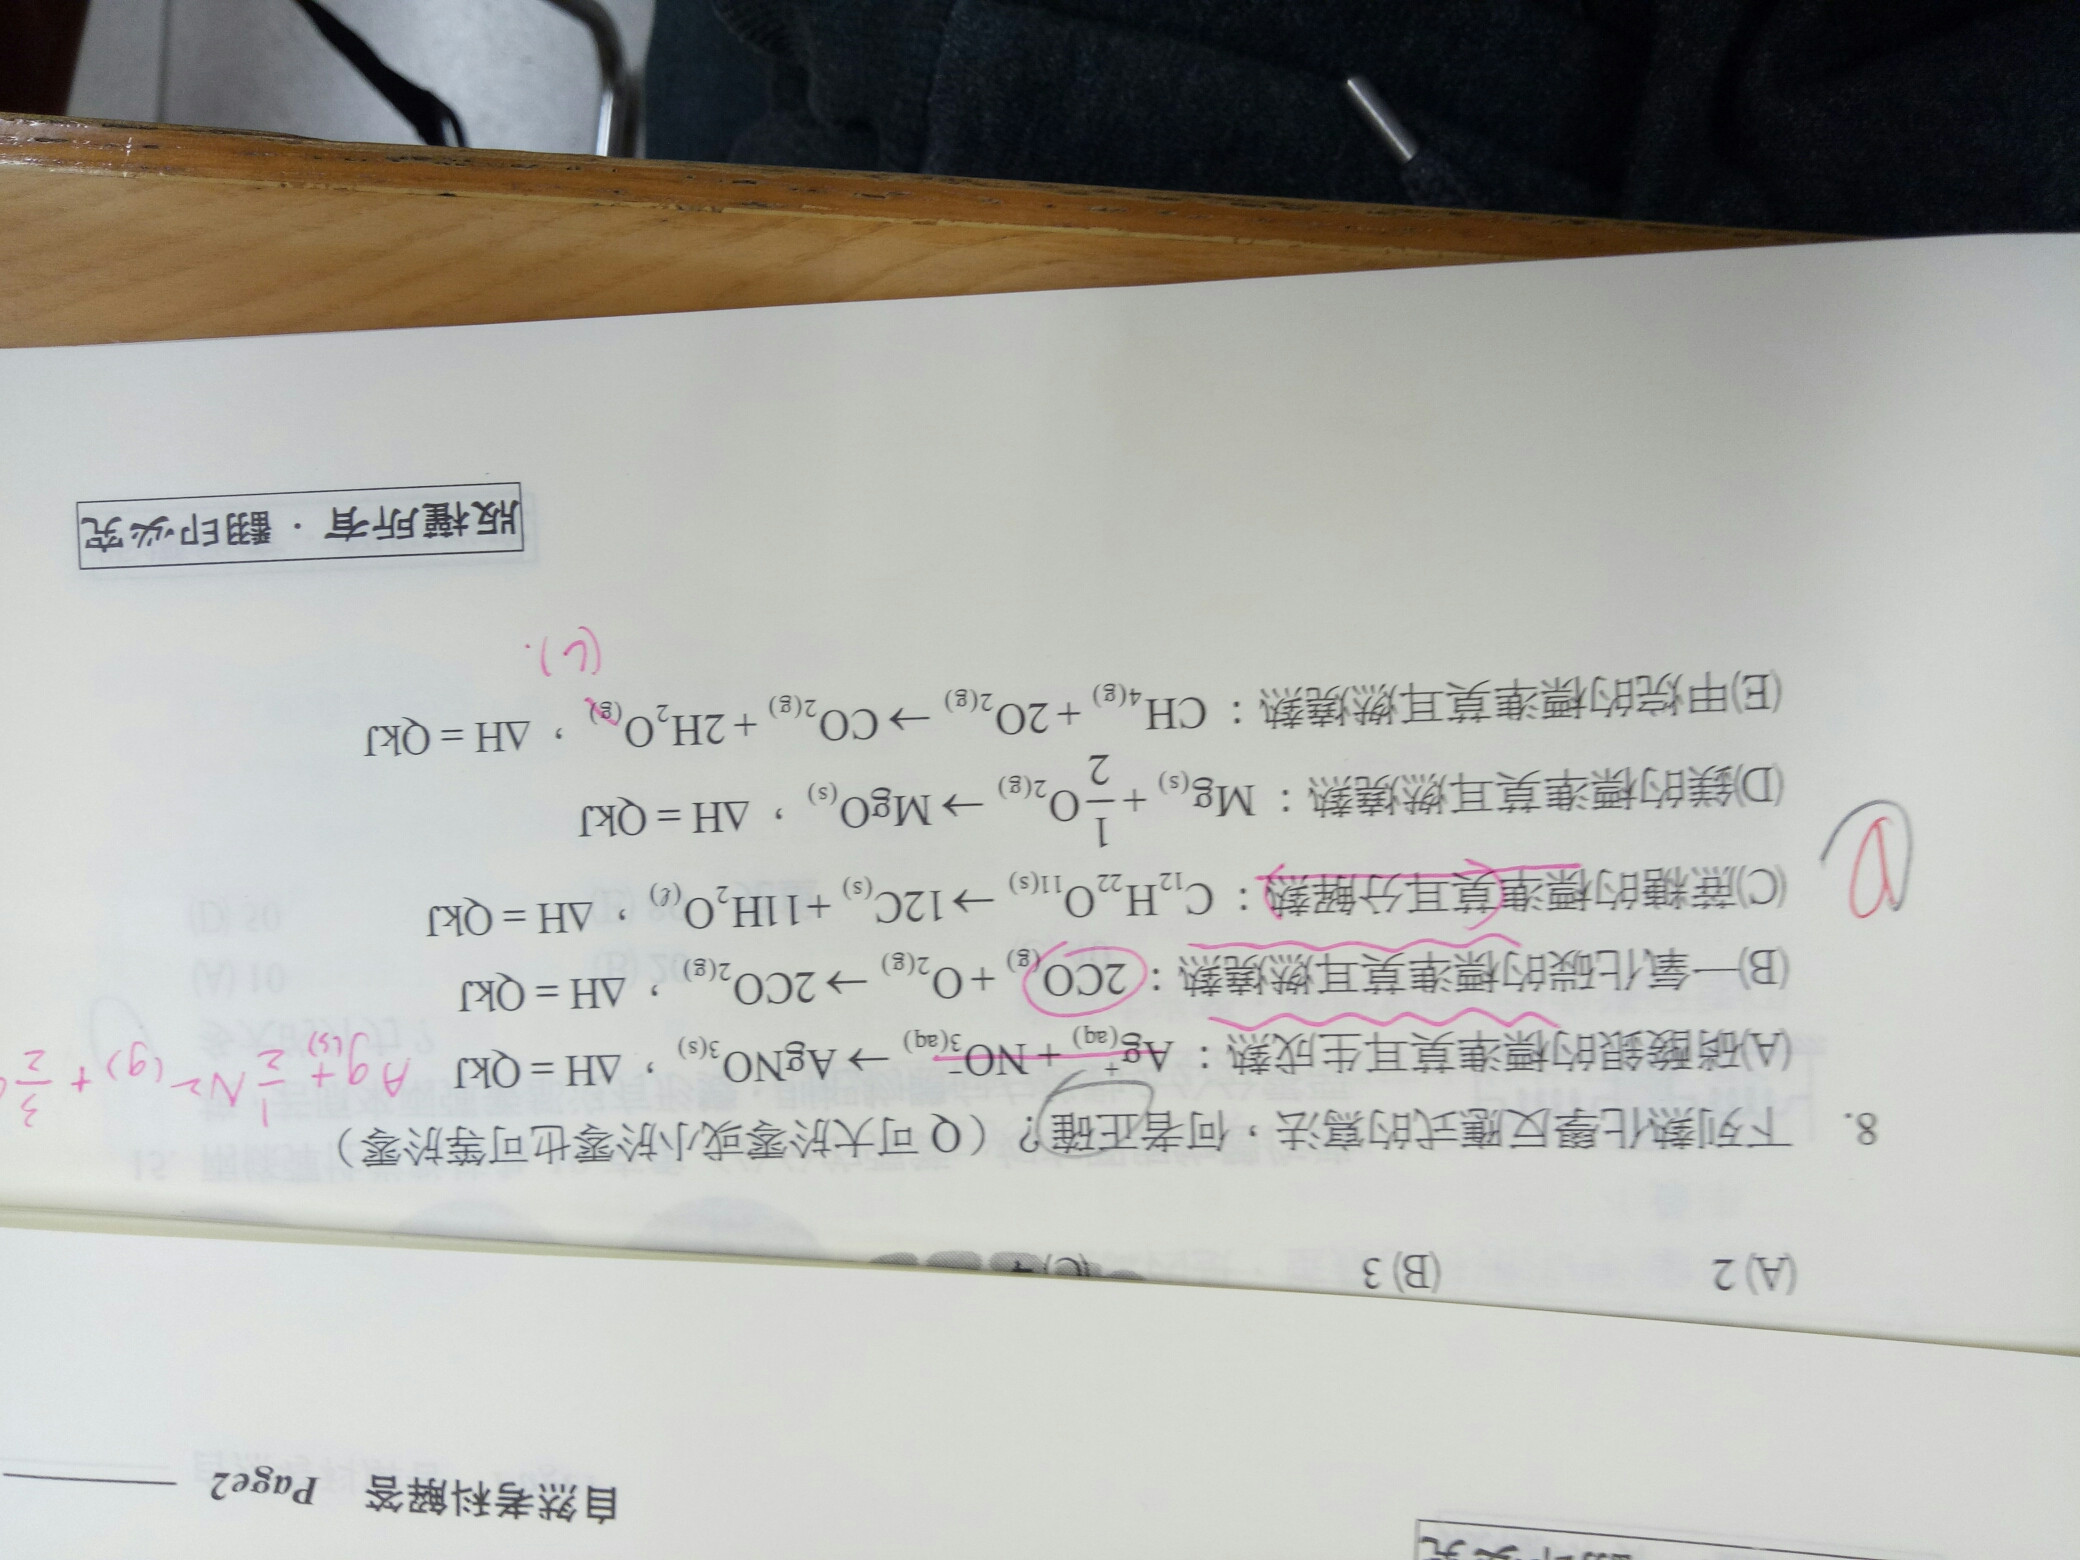 自然考科解答 Page2
(A) 2 (B) 3 (C) 4
8. 下列熱化學反應式的寫法，何者正確？（Q 可大於零或小於零也可等於零）
(A)硝酸銀的標準莫耳生成熱：Ag⁺(aq) + NO₃⁻(aq) → AgNO₃(s)，ΔH = QkJ
Ag(s) + 1/2 N₂(g) + 3/2
(B)一氧化碳的標準莫耳燃燒熱：2CO(g) + O₂(g) → 2CO₂(g)，ΔH = QkJ
(C)蔗糖的標準莫耳分解熱：C₁₂H₂₂O₁₁(s) → 12C(s) + 11H₂O(ℓ)，ΔH = QkJ
D
(D)鎂的標準莫耳燃燒熱：Mg(s) + 1/2 O₂(g) → MgO(s)，ΔH = QkJ
(E)甲烷的標準莫耳燃燒熱：CH₄(g) + 2O₂(g) → CO₂(g) + 2H₂O(g)，ΔH = QkJ
(l).
版權所有．翻印必究